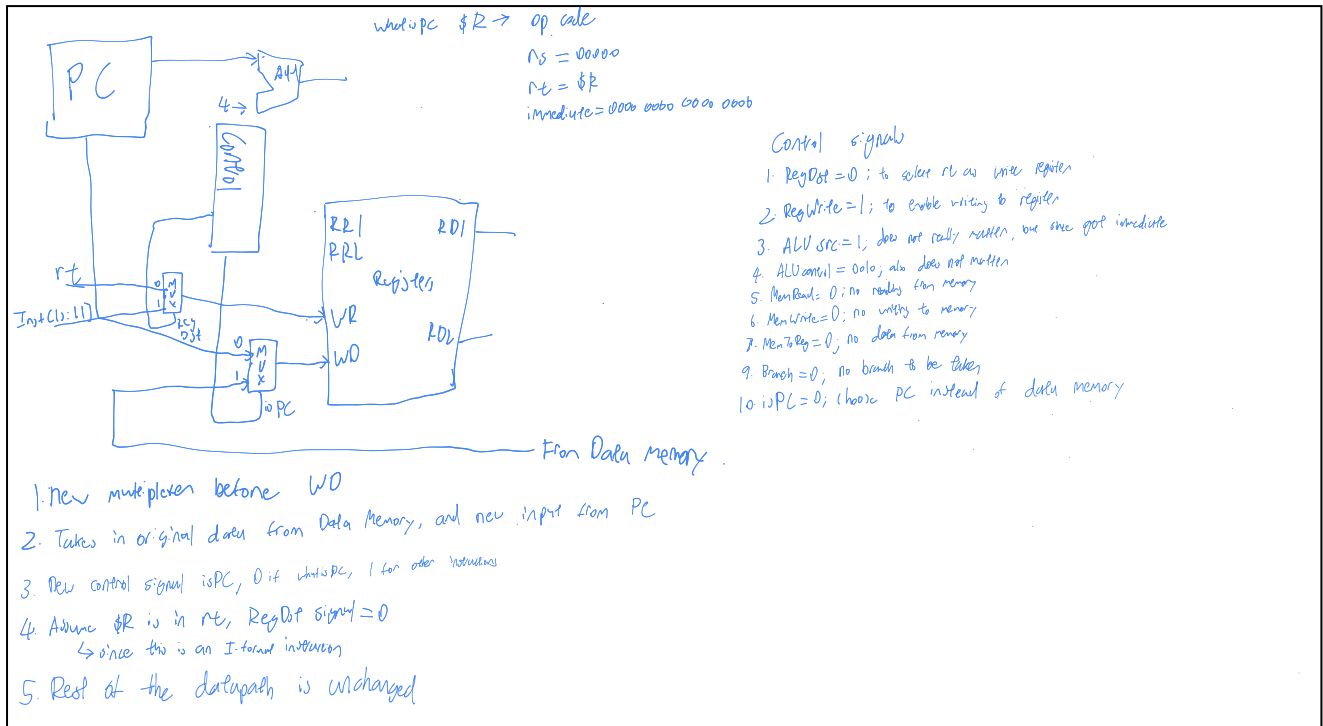 whatispc $R → op code
rs = 00000
rt = $R
immediate = 0000 0000 0000 0000
PC
Add
4 →
Control
RR1
RR2
RD1
Registers
WR
WD
RD2
rt
0
MUX
1
Inst(15:11)
Reg Dst
0
MUX
1
isPC
From Data Memory
Control signals
1. RegDst = 0; to select rt as write register
2. RegWrite = 1; to enable writing to register
3. ALU src = 1; does not really matter, but since got immediate
4. ALUcontrol = 0010; also does not matter
5. MemRead = 0; no reading from memory
6. MemWrite = 0; no writing to memory
7. MemToReg = 0; no data from memory
9. Branch = 0; no branch to be taken
10. isPC = 0; choose PC instead of data memory
1. new multiplexer before WD
2. Takes in original data from Data Memory, and new input from PC
3. New control signal isPC, 0 if whatisPC, 1 for other instructions
4. Assume $R is in rt, RegDst signal = 0
↳ since this is an I-format instruction
5. Rest of the datapath is unchanged